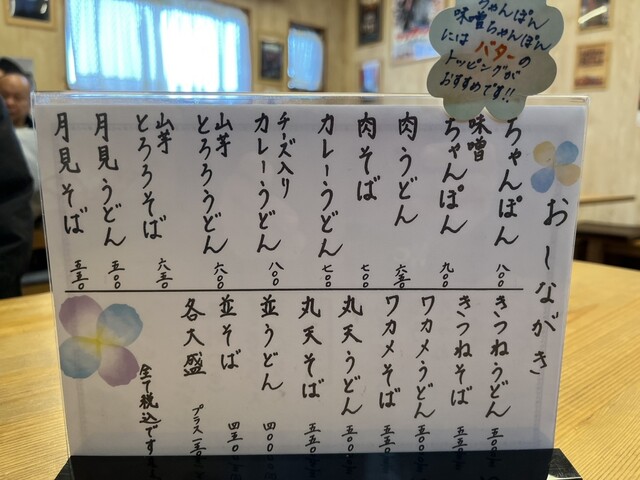 ちゃんぽん
味噌ちゃんぽん
には バターの
トッピングが
おすすめです!!
おしながき
ちゃんぽん 八〇〇
味噌ちゃんぽん 九〇〇
肉うどん 六五〇
肉そば 七〇〇
カレーうどん 七〇〇
チーズ入りカレーうどん 八〇〇
山芋とろろうどん 六〇〇
山芋とろろそば 六五〇
月見うどん 五〇〇
月見そば 五五〇
きつねうどん 五〇〇
きつねそば 五五〇
ワカメうどん 五〇〇
ワカメそば 五五〇
丸天うどん 五〇〇
丸天そば 五五〇
並うどん 四〇〇
並そば 四五〇
各大盛 プラス一五〇
全て税込です